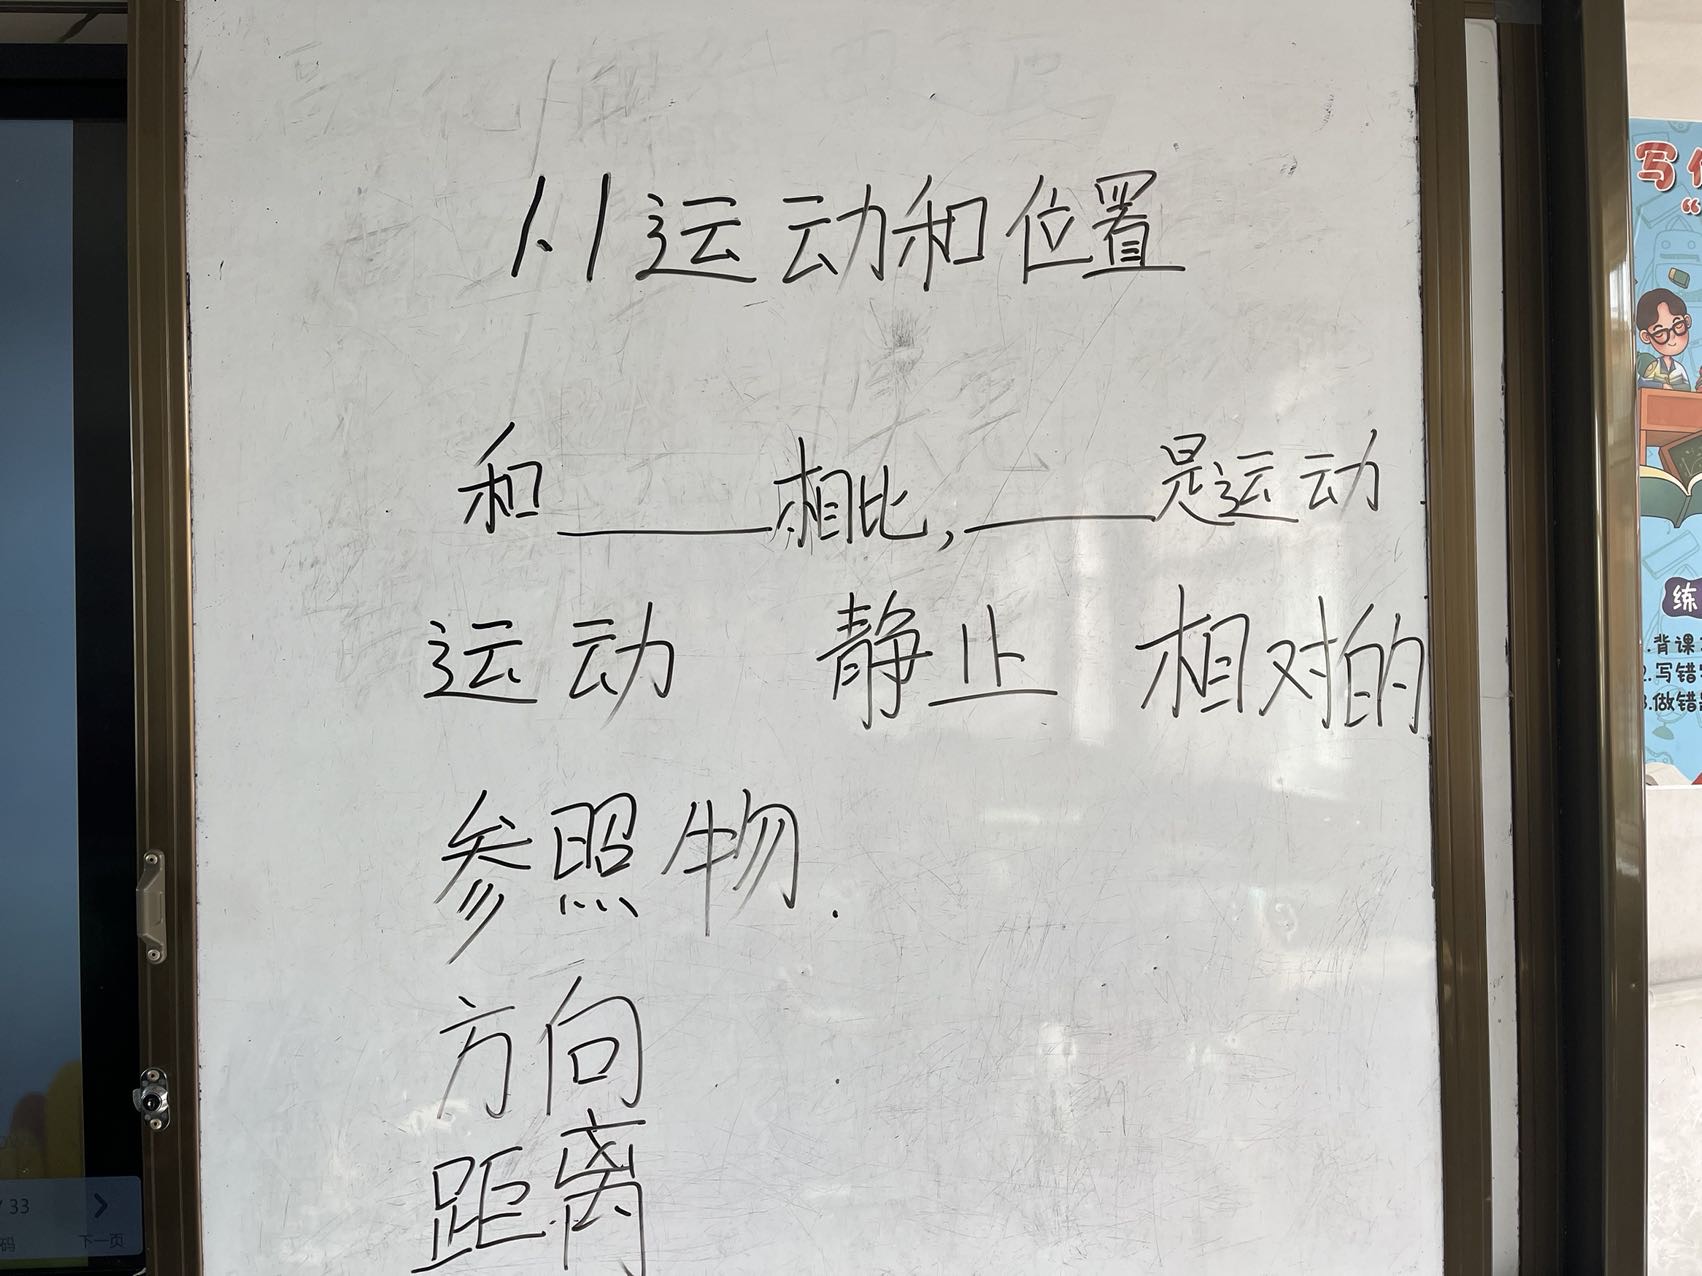 1.1运动和位置
和______相比,______是运动
运动 静止 相对的
参照物.
方向
距离
/33
下一页
码
写
“
练
.背课
2.写错
3.做错